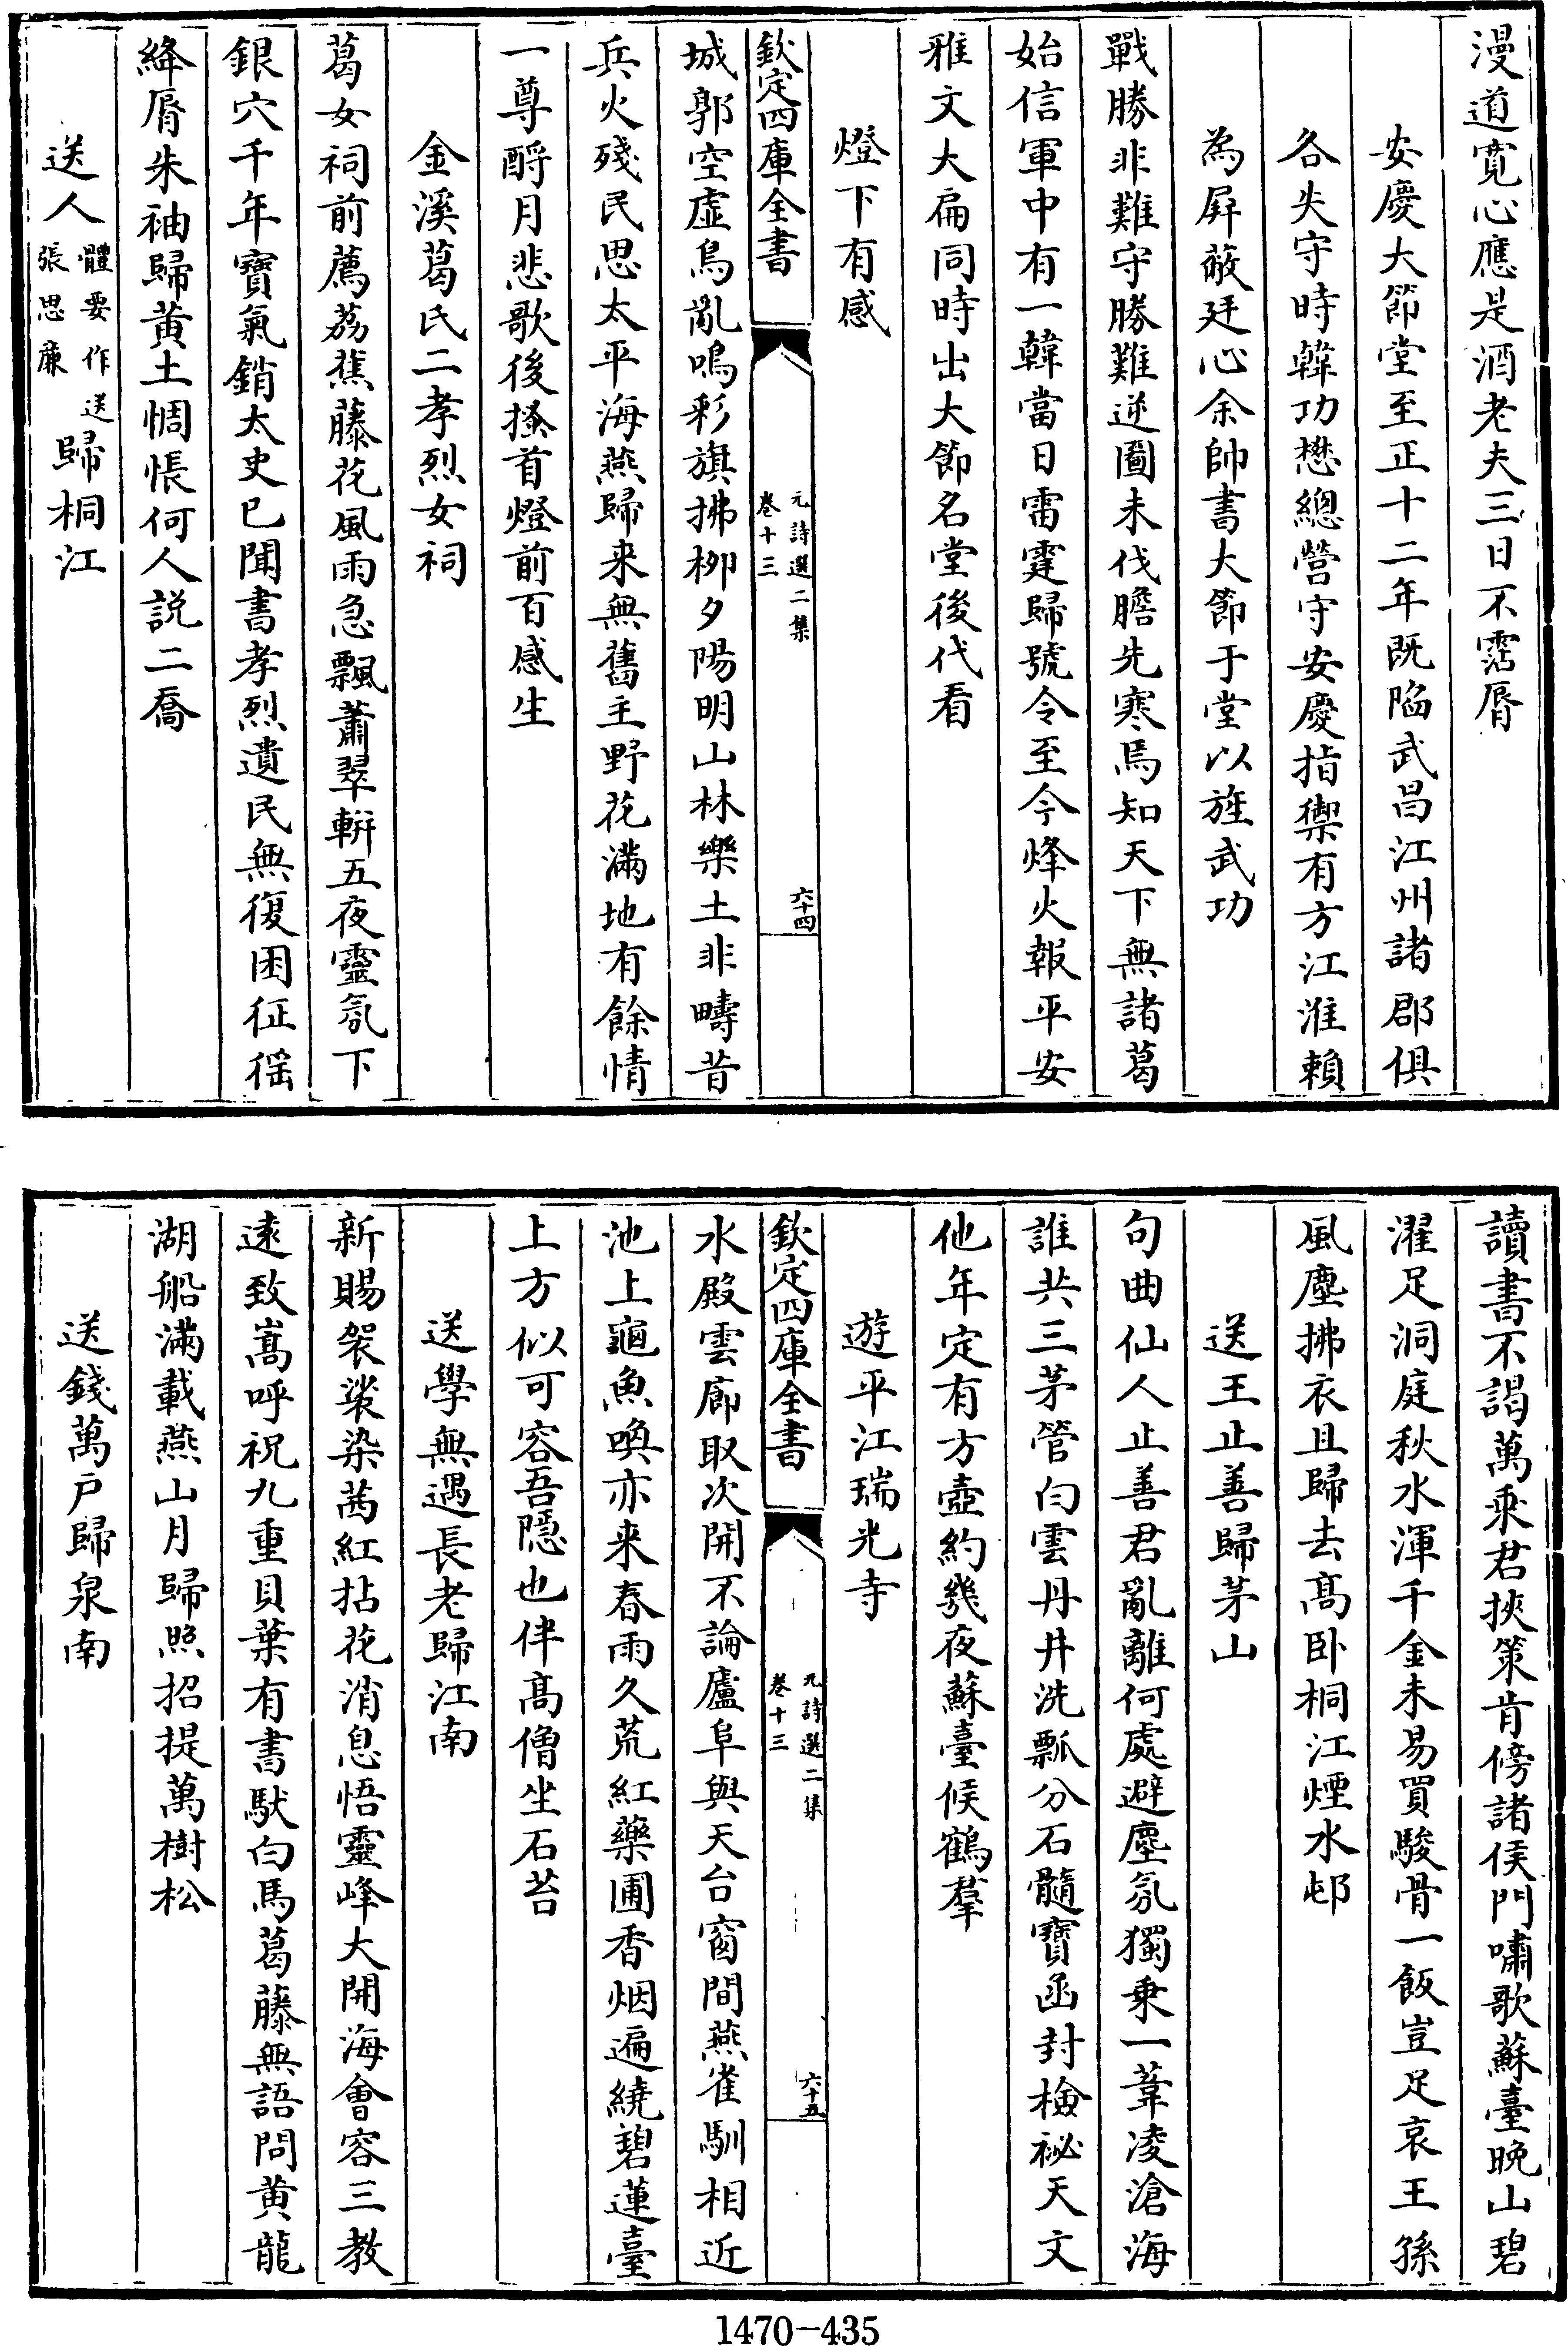 漫道寛心應是酒老夫三日不霑脣
安慶大節堂至正十二年既陷武昌江州諸郡俱
各失守時韓功懋總營守安慶指禦有方江淮賴
為屛蔽廷心余帥書大節于堂以旌武功
戰勝非難守勝難逆圖未伐膽先寒焉知天下無諸葛
始信軍中有一韓當日雷霆歸號令至今烽火報平安
雅文大扁同時出大節名堂後代看
燈下有感
欽定四庫全書
元詩選二集
卷十三
六十四
城郭空虛鳥亂鳴彩旗拂柳夕陽明山林樂土非疇昔
兵火殘民思太平海燕歸来無舊主野花滿地有餘情
一尊酹月悲歌後搔首燈前百感生
金溪葛氏二孝烈女祠
葛女祠前薦荔蕉藤花風雨急飄蕭翠軿五夜靈氛下
銀穴千年寶氣銷太史已聞書孝烈遺民無復困征徭
絳脣朱袖歸黄土惆悵何人説二喬
送人體要作送張思廉歸桐江
讀書不謁萬乘君挾策肯傍諸侯門嘯歌蘇臺晚山碧
濯足洞庭秋水渾千金未易買駿骨一飯豈足哀王孫
風塵拂衣且歸去髙卧桐江煙水邨
送王止善歸茅山
句曲仙人止善君亂離何處避塵氛獨乗一葦凌滄海
誰共三茅管白雲丹井洗瓢分石髓寶函封檢祕天文
他年定有方壺約幾夜蘇臺候鶴羣
遊平江瑞光寺
欽定四庫全書
元詩選二集
卷十三
六十五
水殿雲廊取次開不論廬阜與天台窗間燕雀馴相近
池上龜魚喚亦来春雨久荒紅藥圃香烟遍繞碧蓮臺
上方似可容吾隱也伴髙僧坐石苔
送學無遇長老歸江南
新賜袈裟染茜紅拈花消息悟靈峰大開海會容三教
逺致嵩呼祝九重貝葉有書馱白馬葛藤無語問黄龍
湖船滿載燕山月歸照招提萬樹松
送錢萬户歸泉南
1470-435